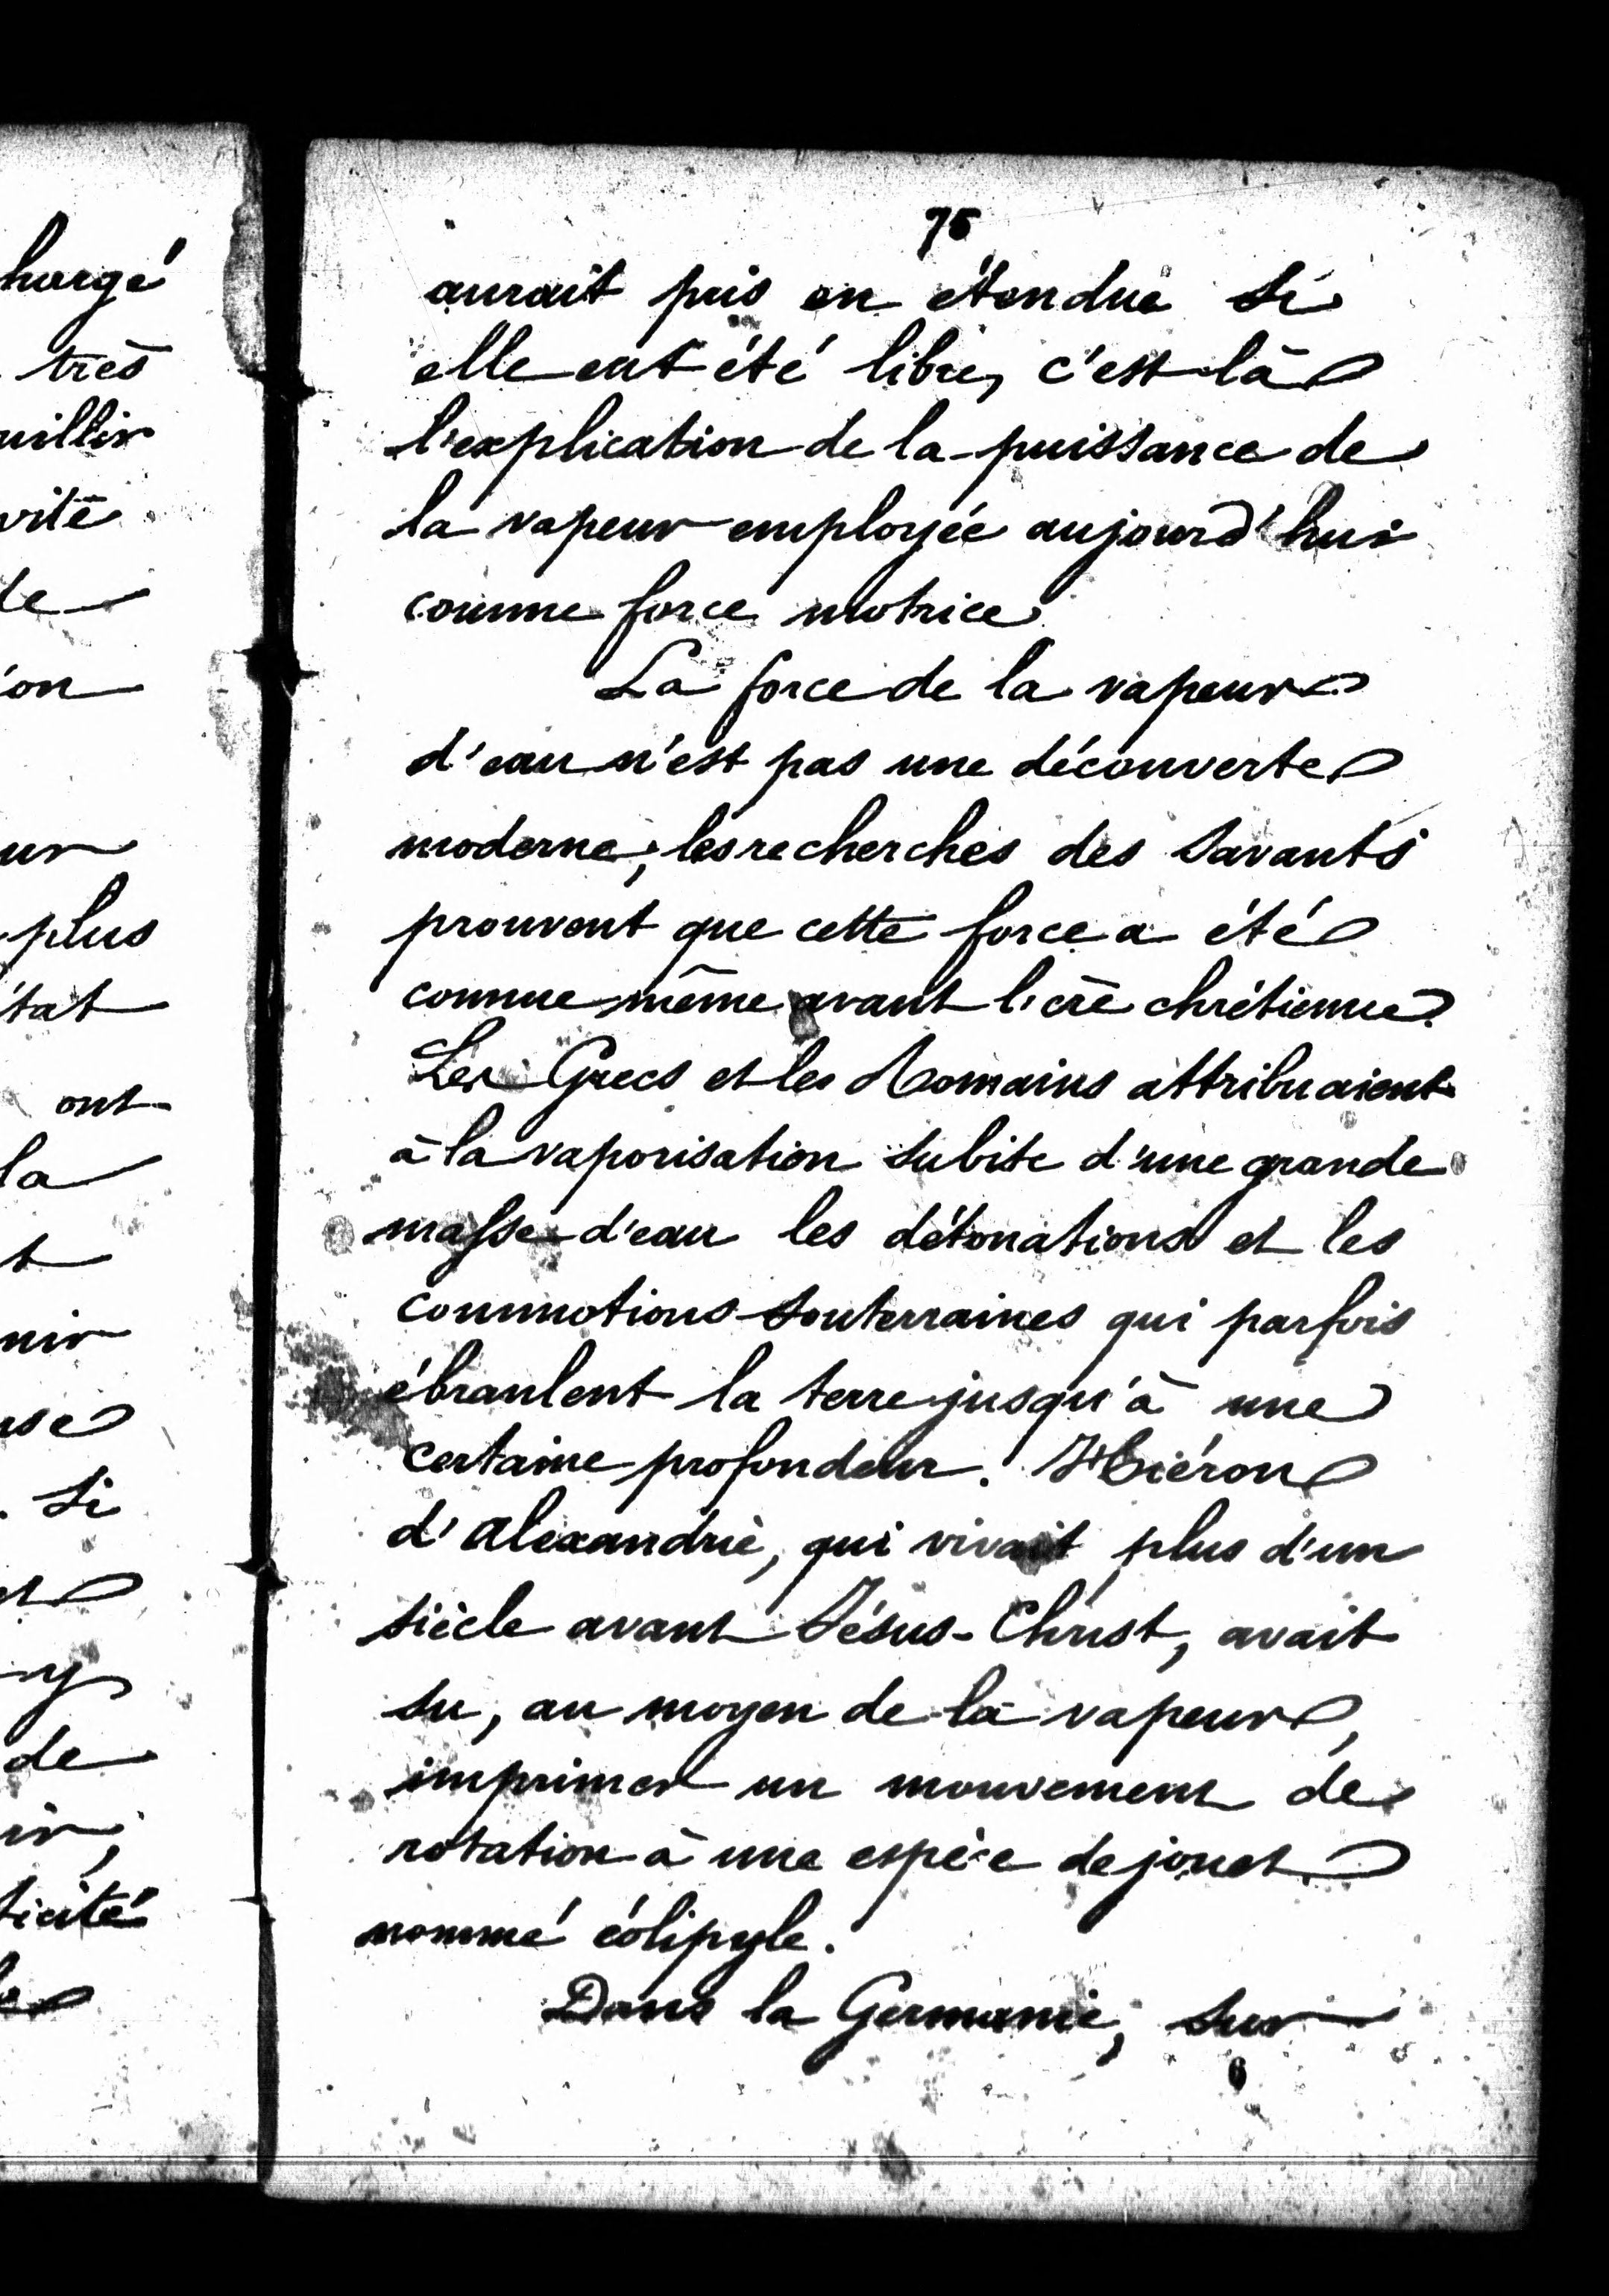 hargé
très
uillir
vité
de
ion
ur
plus
état
ont
la
t
nir
use
. Si
de
ir,
ticité
75
aurait pris en étendue si
elle eut été libre, c'est là
l'explication de la puissance de
la vapeur employée aujourd'hui
comme force motrice
La force de la vapeur
d'eau n'est pas une découverte
moderne; les recherches des savants
prouvent que cette force a été
connue même avant l'ère chrétienne.
Les Grecs et les Romains attribuaient
à la vaporisation subite d'une grande
masse d'eau les détonations et les
commotions souterraines qui parfois
ébranlent la terre jusqu'à une
certaine profondeur. Hiéron
d'Alexandrie, qui vivait plus d'un
siècle avant Jésus-Christ, avait
su, au moyen de la vapeur,
imprimer un mouvement de
rotation à une espèce de jouet
nommé éolipyle.
Dans la Germanie, sur
6